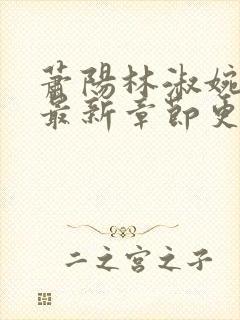 蕭陽林淑婉
最新章節更
二之宮之子